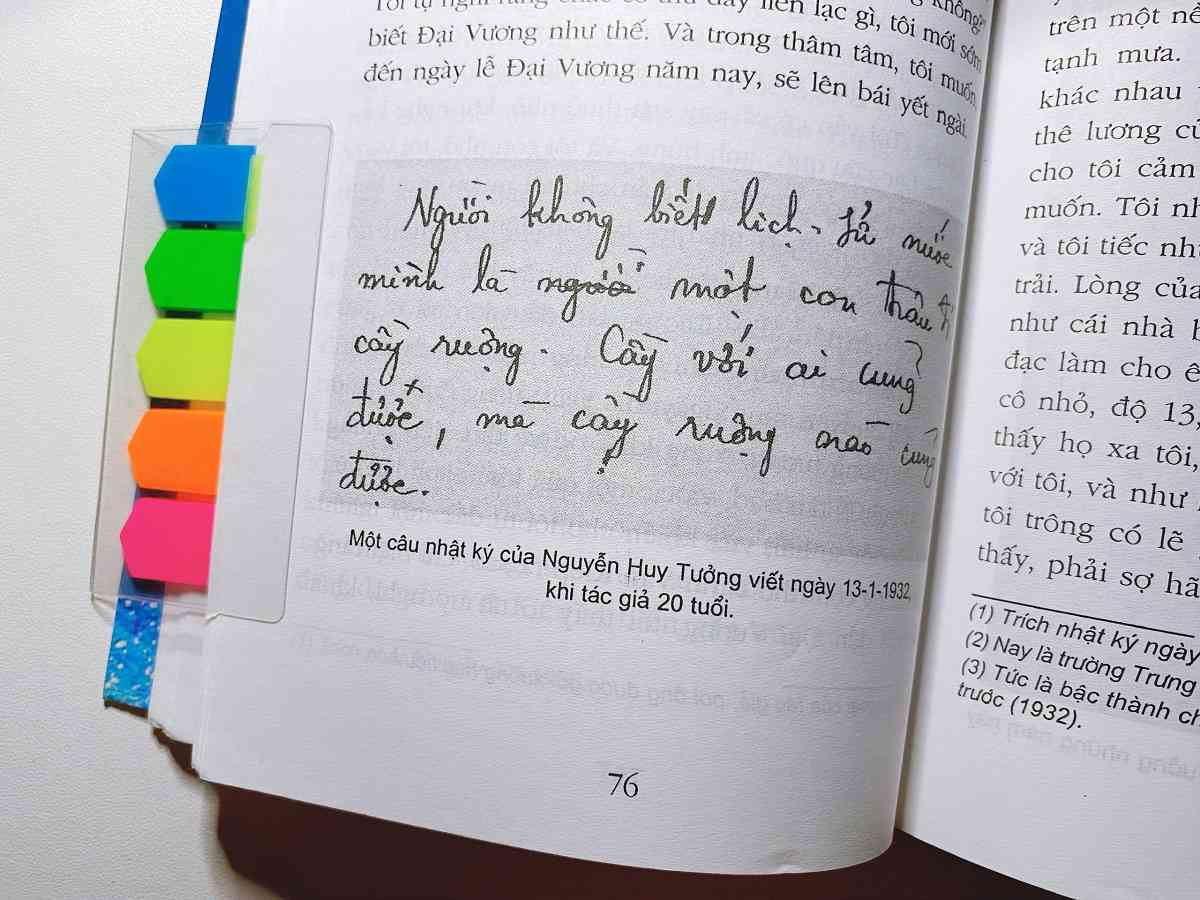 biết Đại Vương như thế. Và trong thâm tâm, tôi muốn,
đến ngày lễ Đại Vương năm nay, sẽ lên bái yết ngài.
Người không biết lịch-sử nước
mình là người một con trâu đi
cầy ruộng. Cầy với ai cũng
được, mà cầy ruộng nào cũng
được.
Một câu nhật ký của Nguyễn Huy Tưởng viết ngày 13-1-1932,
khi tác giả 20 tuổi.
76
trên một
tạnh mưa.
khác nhau
thê lương
cho tôi cảm
muốn. Tôi
và tôi tiếc
trải. Lòng của
như cái nhà
đạc làm cho
cô nhỏ, độ 13,
thấy họ xa tôi,
với tôi, và như
tôi trông có lẽ
thấy, phải sợ
(1) Trích nhật ký ngày
(2) Nay là trường Trung
(3) Tức là bậc thành
trước (1932).